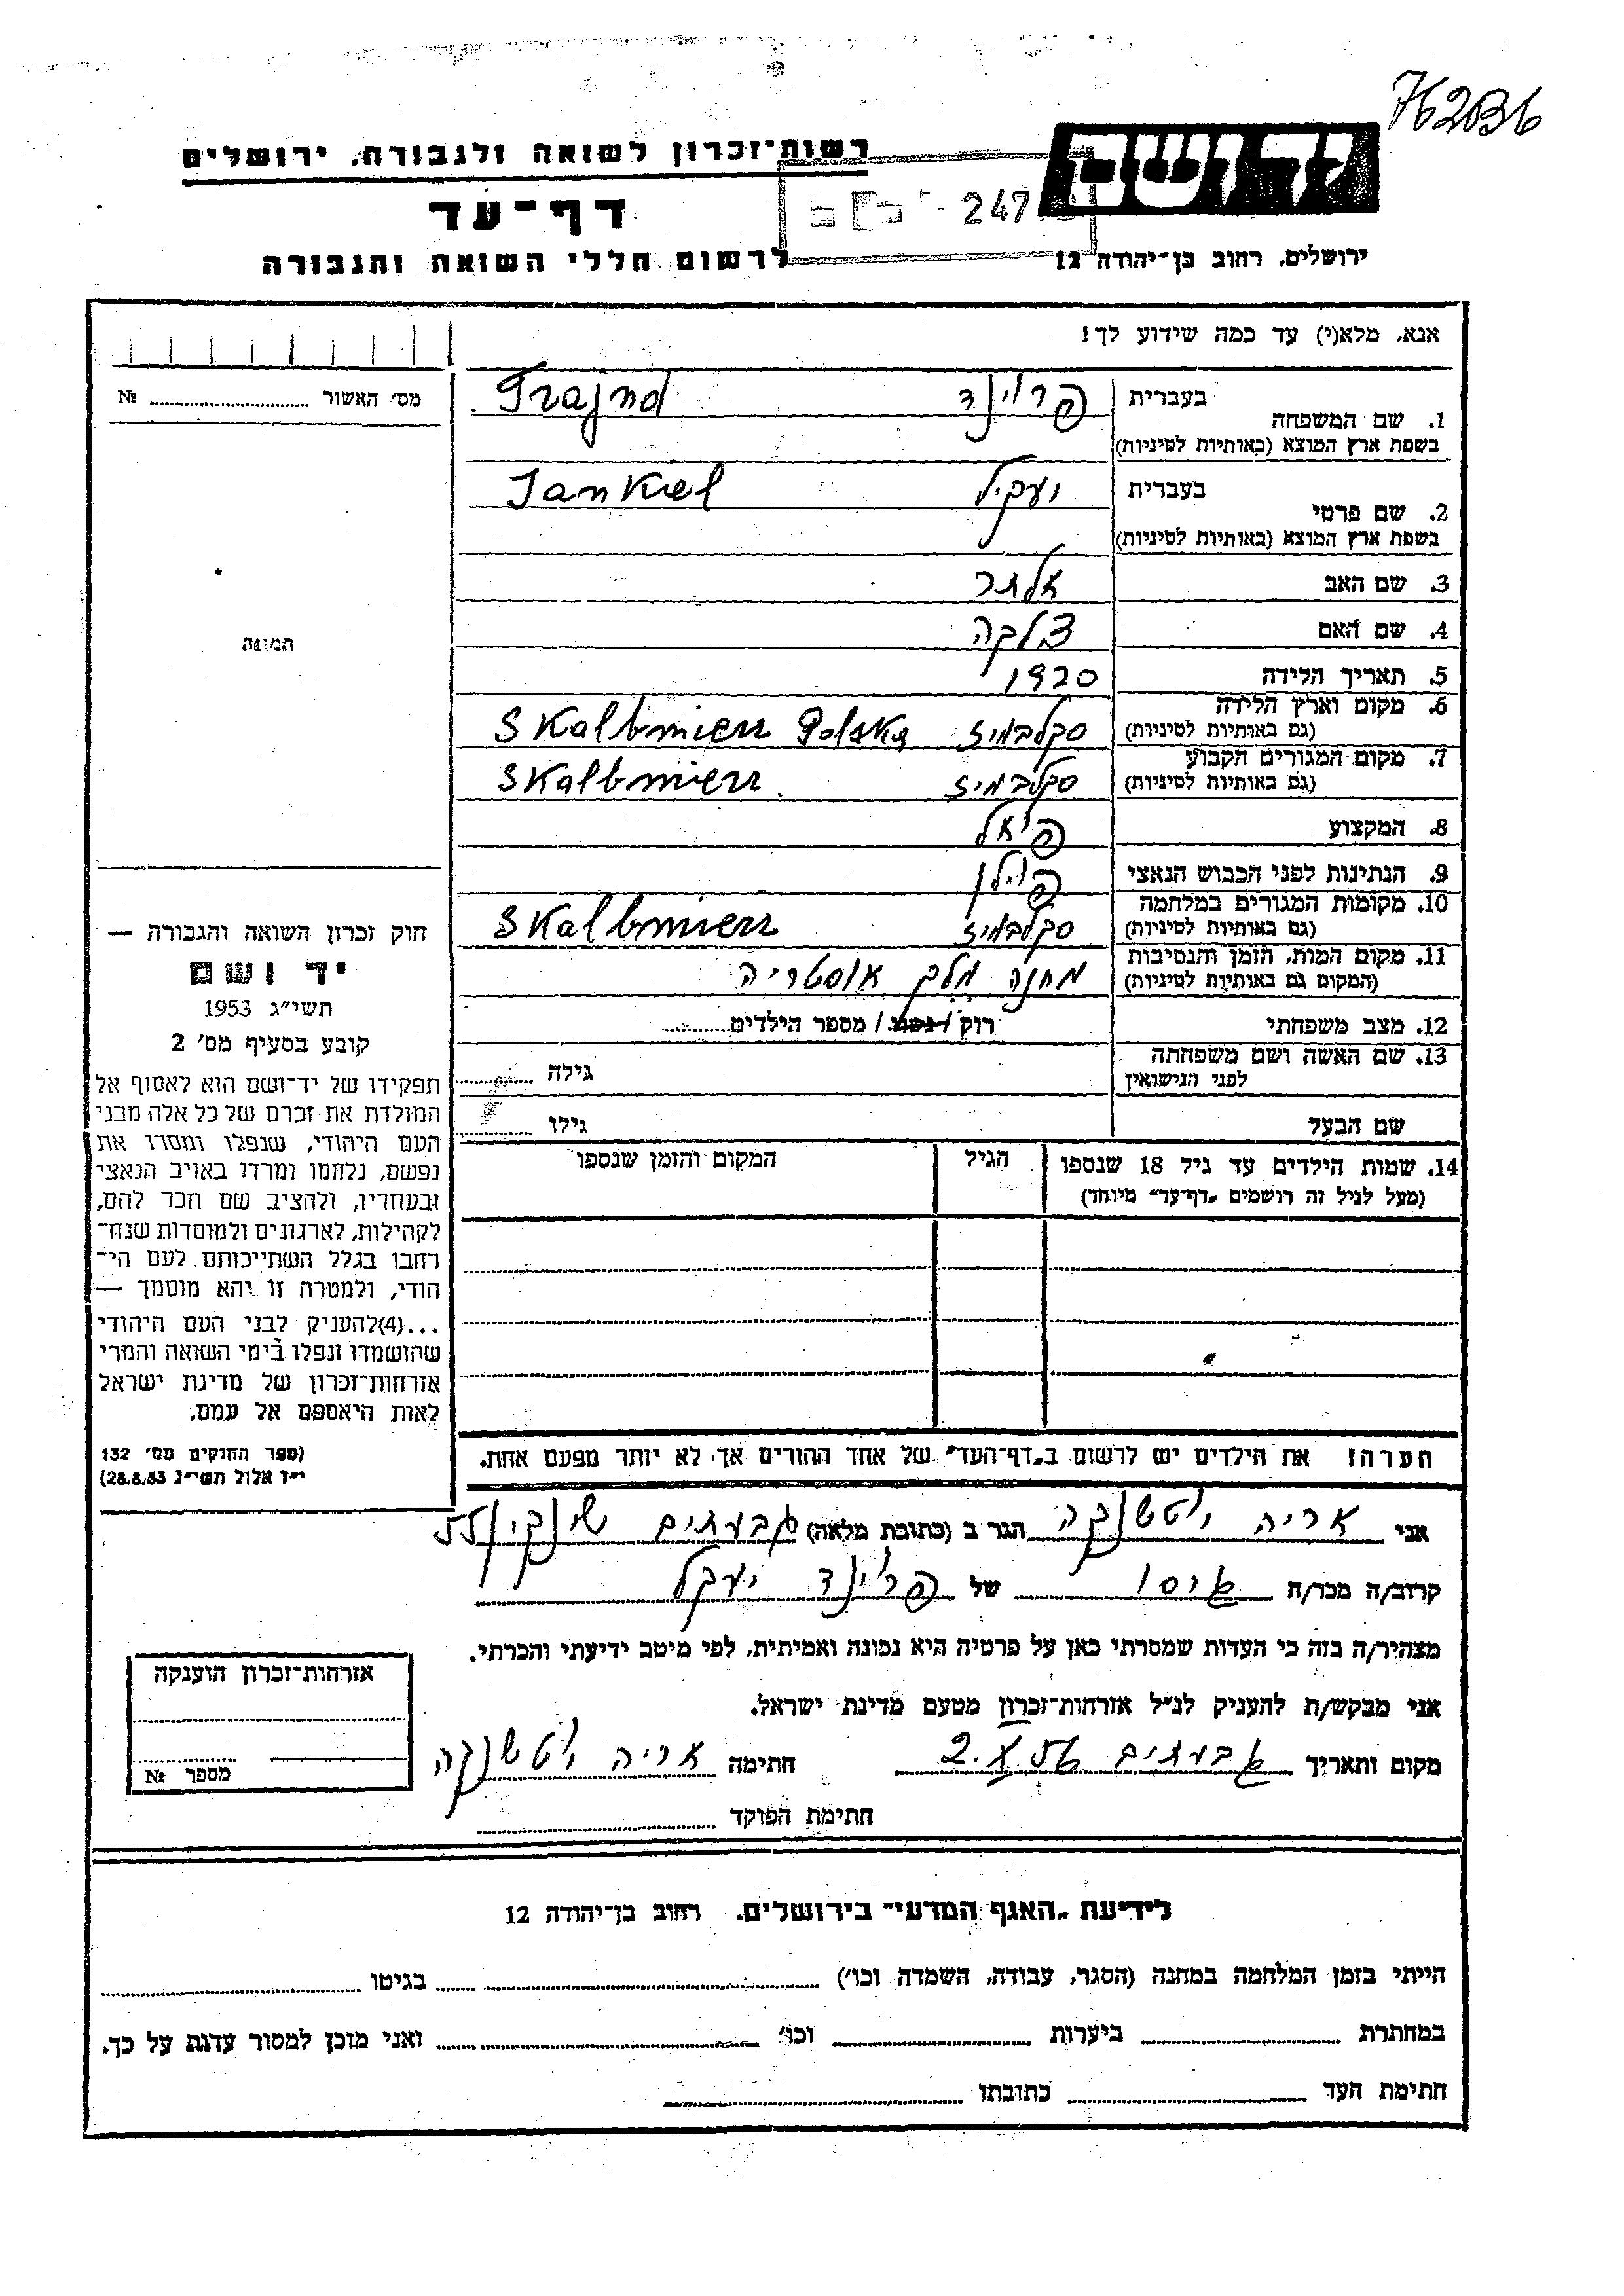 76236
יד ושם
רשות־זכרון לשואה ולגבורה, ירושלים
247
דף־עד
ירושלים, רחוב בן־יהודה 12
לרשום חללי השואה והגבורה
אנא, מלא(י) עד כמה שידוע לך!
מס׳ האשור № 
1. שם המשפחה בעברית פרוינד Frajnd
בשפת ארץ המוצא (באותיות לטיניות)
2. שם פרטי בעברית יעקיל Jankiel
בשפת ארץ המוצא (באותיות לטיניות)
3. שם האב אלתר
4. שם האם
תמונה
5. תאריך הלידה 1920
6. מקום וארץ הלידה סקלבמיז Skalbmierz Polska
(גם באותיות לטיניות)
7. מקום המגורים הקבוע סקלבמיז Skalbmierz
(גם באותיות לטיניות)
8. המקצוע
9. הנתינות לפני הכבוש הנאצי פולין
10. מקומות המגורים במלחמה סקלבמיז Skalbmierz
(גם באותיות לטיניות)
11. מקום המות, הזמן והנסיבות מחנה מלק אוסטריה
(המקום גם באותיות לטיניות)
12. מצב משפחתי רוק / נשוי / מספר הילדים
13. שם האשה ושם משפחתה גילה
לפני הנישואין
שם הבעל גילו
14. שמות הילדים עד גיל 18 שנספו הגיל המקום והזמן שנספו
(מעל לגיל זה רושמים „דף־עד” מיוחד)
חוק זכרון השואה והגבורה —
יד ושם
תשי״ג 1953
קובע בסעיף מס׳ 2
תפקידו של יד־ושם הוא לאסוף אל
המולדת את זכרם של כל אלה מבני
העם היהודי, שנפלו ומסרו את
נפשם, נלחמו ומרדו באויב הנאצי
ובעוזריו, ולהציב שם וזכר להם,
לקהילות, לארגונים ולמוסדות שנח־
רחבו בגלל השתייכותם לעם הי־
הודי, ולמטרה זו יהא מוסמך —
...(4)להעניק לבני העם היהודי
שהושמדו ונפלו בימי השואה והמרי
אזרחות־זכרון של מדינת ישראל
לאות היאספם אל עמם.
(ספר החוקים מס׳ 132
י״ז אלול תשי״ג 28.8.53)
הערה! את הילדים יש לרשום ב„דף־העד” של אחד ההורים אך לא יותר מפעם אחת.
אני אריה ויטשנקה הגר ב (כתובת מלאה) גבעתים שינקין 55
קרוב/ה מכר/ה גיסו של פריינד יעקל
מצהיר/ה בזה כי העדות שמסרתי כאן על פרטיה היא נכונה ואמיתית, לפי מיטב ידיעתי והכרתי.
אני מבקש/ת להעניק לנ״ל אזרחות־זכרון מטעם מדינת ישראל.
מקום ותאריך גבעתים 2.X.56 חתימה אריה ויטשנקה
חתימת הפוקד
אזרחות־זכרון הוענקה
מספר №
לידיעת „האגף המדעי” בירושלים. רחוב בן־יהודה 12
הייתי בזמן המלחמה במחנה (הסגר, עבודה, השמדה וכו׳) בגיטו
במחתרת ביערות וכו׳ ואני מוכן למסור עדות על כך.
חתימת העד כתובתו